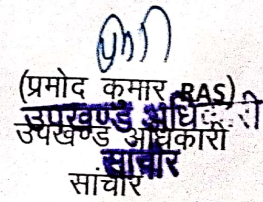 (प्रमोद कुमार RAS)
उपखण्ड अधिकारी
उपखण्ड अधिकारी
सांचौर
सांचौर